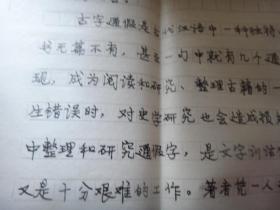 古字通假是古代汉语中一种独特
书无篇不有，甚至一句中就有几个通
现，成为阅读和研究、整理古籍的一
生错误时，对史学研究也会造成损
中整理和研究通假字，是文字训诂
又是十分艰难的工作。著者凭一人